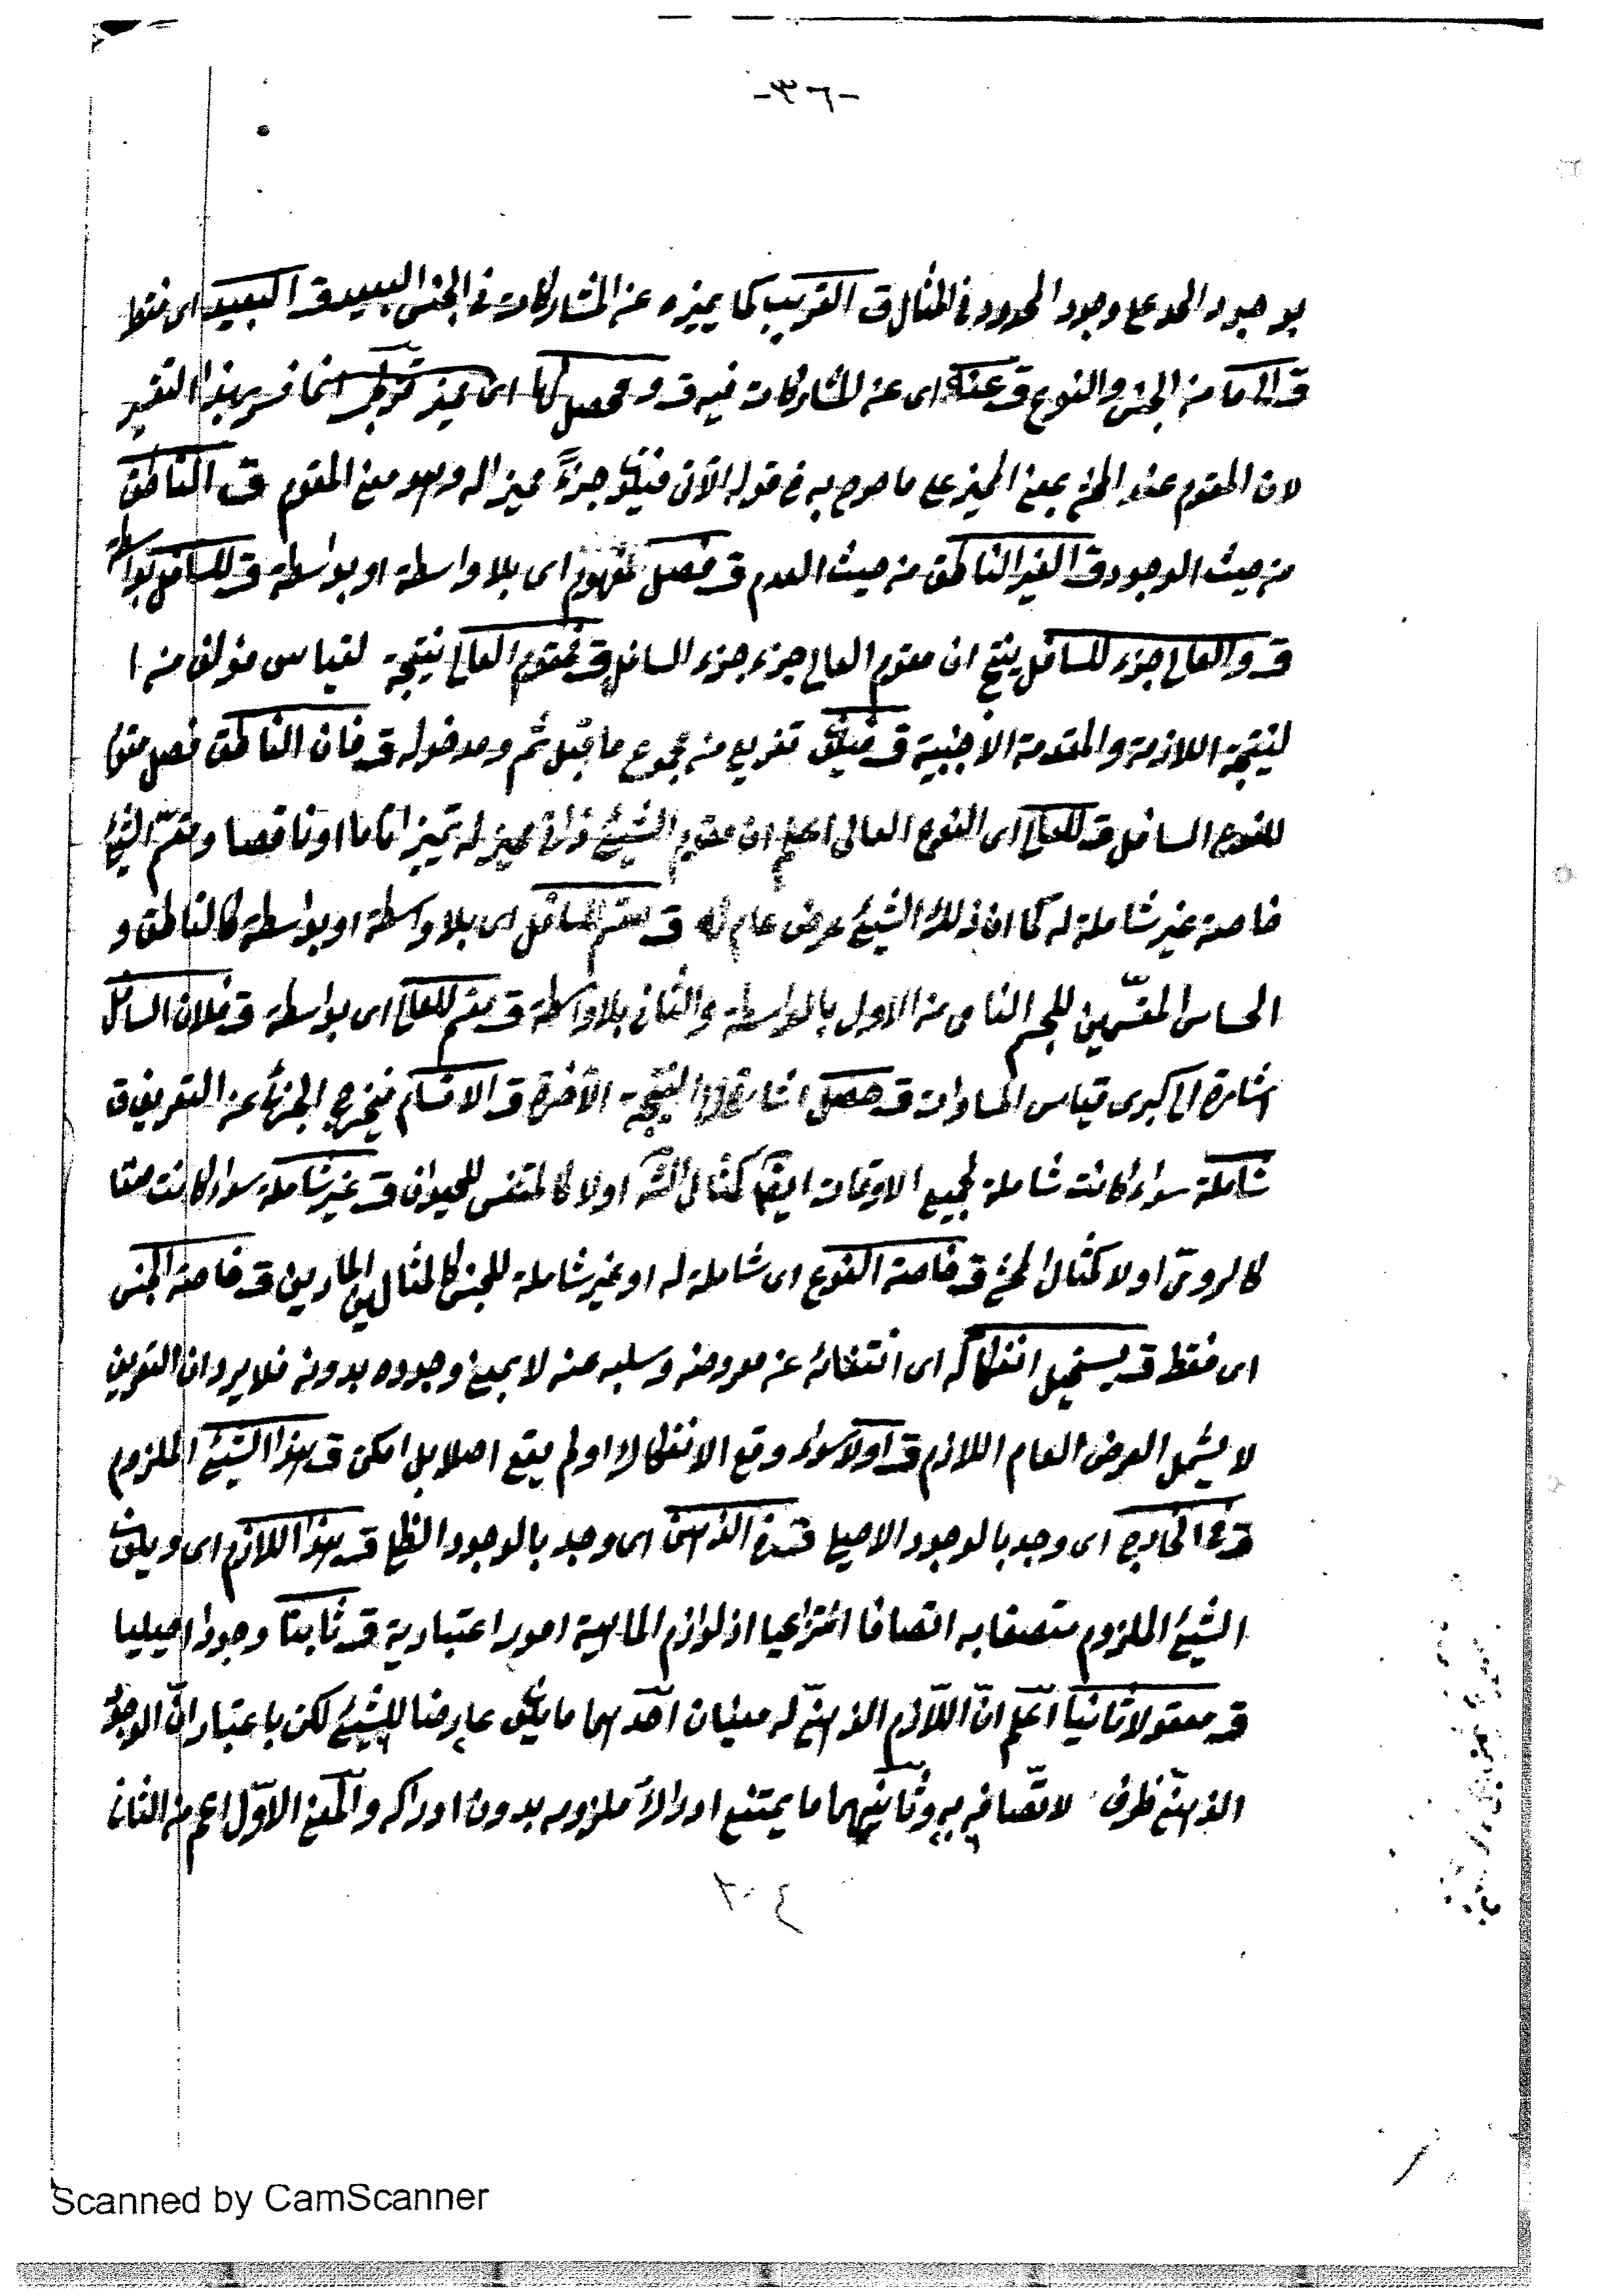 -٣٢-
بوجود الحد مع وجود المحدود في المثال ق القريب كما يميزه عن المشاركات في الجنس البعيد ق البعيد اى فقط
ق الماهية من الجنس والنوع ق عنه اى عن المشاركات فيه ق ومحصل لها اى مميز انما فسر بهذا التفسير
لان المقوم عند المحشي بمعنى المميز على ما صرح به في قوله الآتي فيكون جزءً مميزا له وهو معنى المقوم ق الناطق
من حيث الوجود ق الغير الناطق من حيث العدم ق فصل مقوم اى بلا واسطة او بواسطة ق للسافل بواسطة
ق والعالي جزء للسافل ينتج ان مقوم العالي جزء جزء السافل ق فمقوم العالي نتيجة لقياس مؤلف من ا
لنتيجة اللازمة والمقدمة الاجنبية ق فيكون تفريع من مجموع ما قبل ثم ومدخوله ق فان الناطق فصل مقوم
للنوع السافل ق للعالي اى النوع العالى اعلم ان مقوم الشيئ ذاتى مميز له تميزا تاما او ناقصا ومقسّم الشيئ
خاصة غير شاملة له كما ان ذلك الشيئ عرض عام له ق مقسم للسافل اى بلا واسطة او بواسطة كالناطق و
الحساس المقسّمين للجسم النامى من الاول بالواسطة والثانى بلا واسطة ق مقسم للعالي اى بواسطة ق فلان السافل
اشارة الى كبرى قياس المساوات ق حصل اشارة الى النتيجة الأخرة ق الاقسام فيخرج الجزئ عن التعريف ق
شاملة سواء كانت شاملة لجميع الاوقات ايضا كمثال الش اولا كالمتنفس للحيوان ق غير شاملة سواء كانت
كالرومى اولا كمثال المحشي ق خاصة النوع اى شاملة له او غير شاملة للجنس كالمثالين المارين ق خاصة الجنس
اى فقط ق يستحيل انفكاكه اى انتفائه عن معروضه وسلبه عنه لا بمعنى وجوده بدونه فلا يرد ان التعريف
لا يشمل العرض العام اللازم ق اولا سواء وقع الانفكاك او لم يقع اصلا بل امكن ق هذا الشيئ الملزوم
ق في الخارج اى وجد بالوجود الاصيلي ق في الذهن اى وجد بالوجود الظلي ق هذا اللازم اى ويكون
الشيئ الملزوم متصفا به اتصافا انتزاعيا اذ لوازم الماهية امور اعتبارية ق ثابتا وجودا اصيليا
ق معقولا ثانيا اعلم انّ اللّازم الذهنيّ له معنيان احدهما ما يكون عارضا للشيئ لكن باعتبار انّ الوجود
الذهنيّ ظرف لاتّصافه به وثانيهما ما يمتنع ادراك ملزومه بدون ادراكه والمعنى الاوّل اعم من الثانى
Scanned by CamScanner